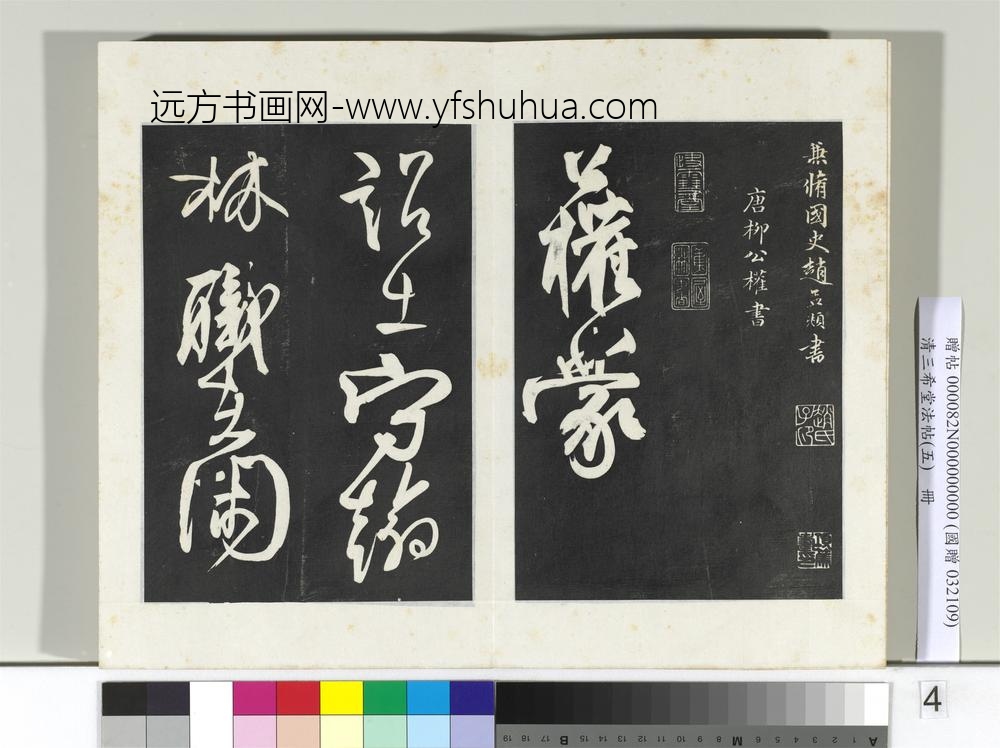 远方书画网-www.yfshuhua.com
兼脩國史趙孟頫書
趙氏子昂
唐柳公權書
公權蒙
詔出守翰
林職在閑
贈帖 000082N000000000 (國贈 032109)
清三希堂法帖(五) 冊
4
A 1 2 3 4 5 6 M 8 9 10 11 12 13 14 15 B 17 18 19